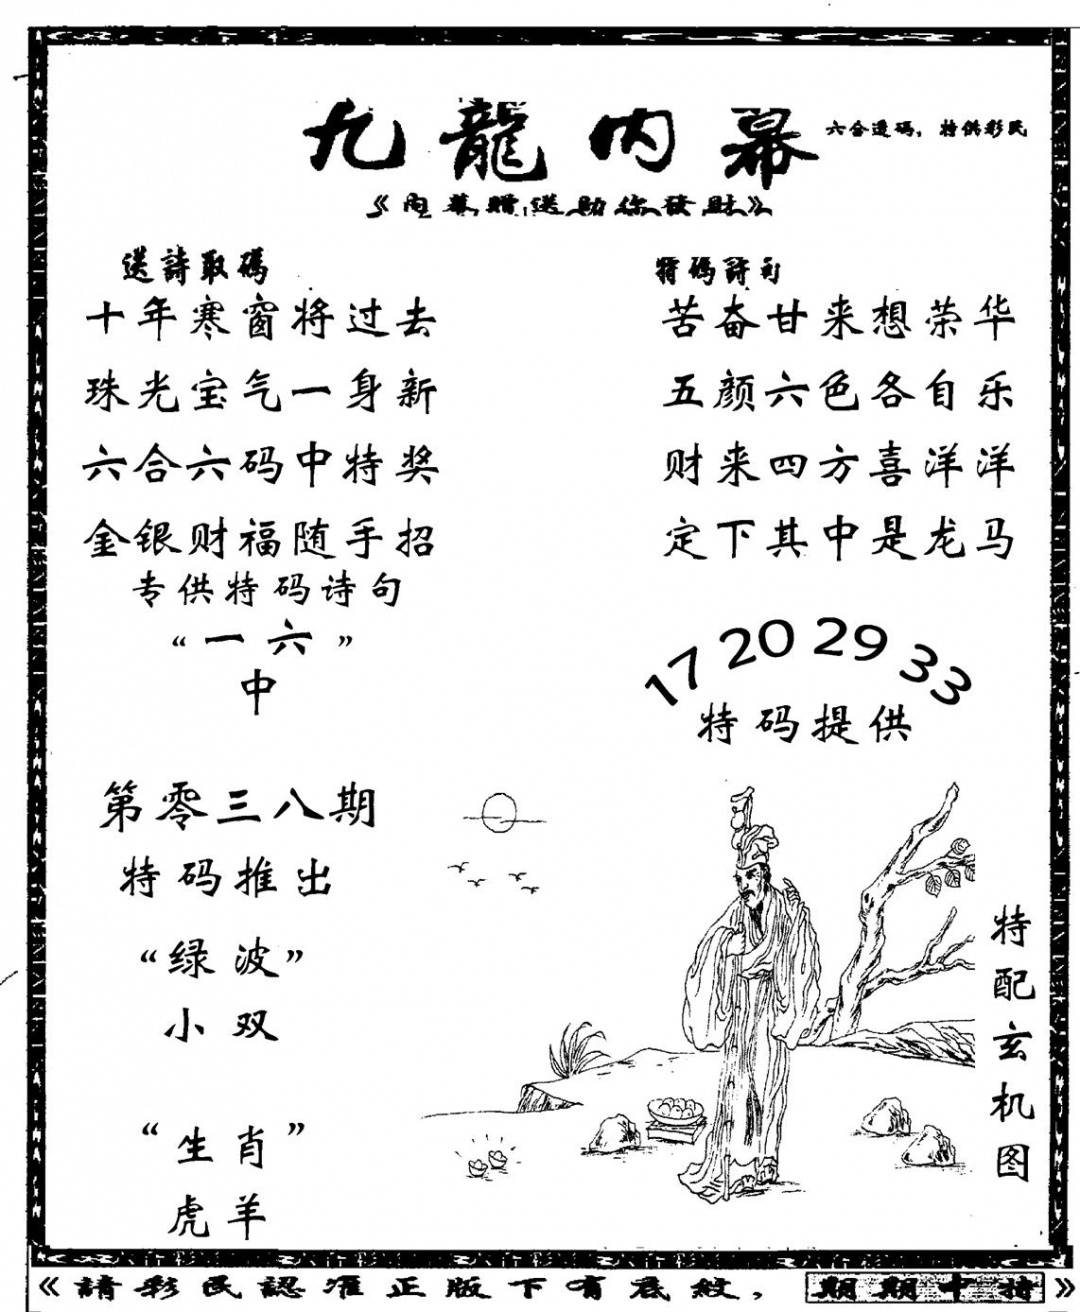 九龍內幕
六合透码，特供彩民
《內幕贈送助你發財》
送詩取碼
十年寒窗将过去
珠光宝气一身新
六合六码中特奖
金银财福随手招
专供特码诗句
“一六”
中
特碼詩句
苦奋甘来想荣华
五颜六色各自乐
财来四方喜洋洋
定下其中是龙马
17 20 29 33
特码提供
第零三八期
特码推出
“绿波”
小双
“生肖”
虎羊
特配玄机图
《請彩民認准正版下有底紋，期期中特》